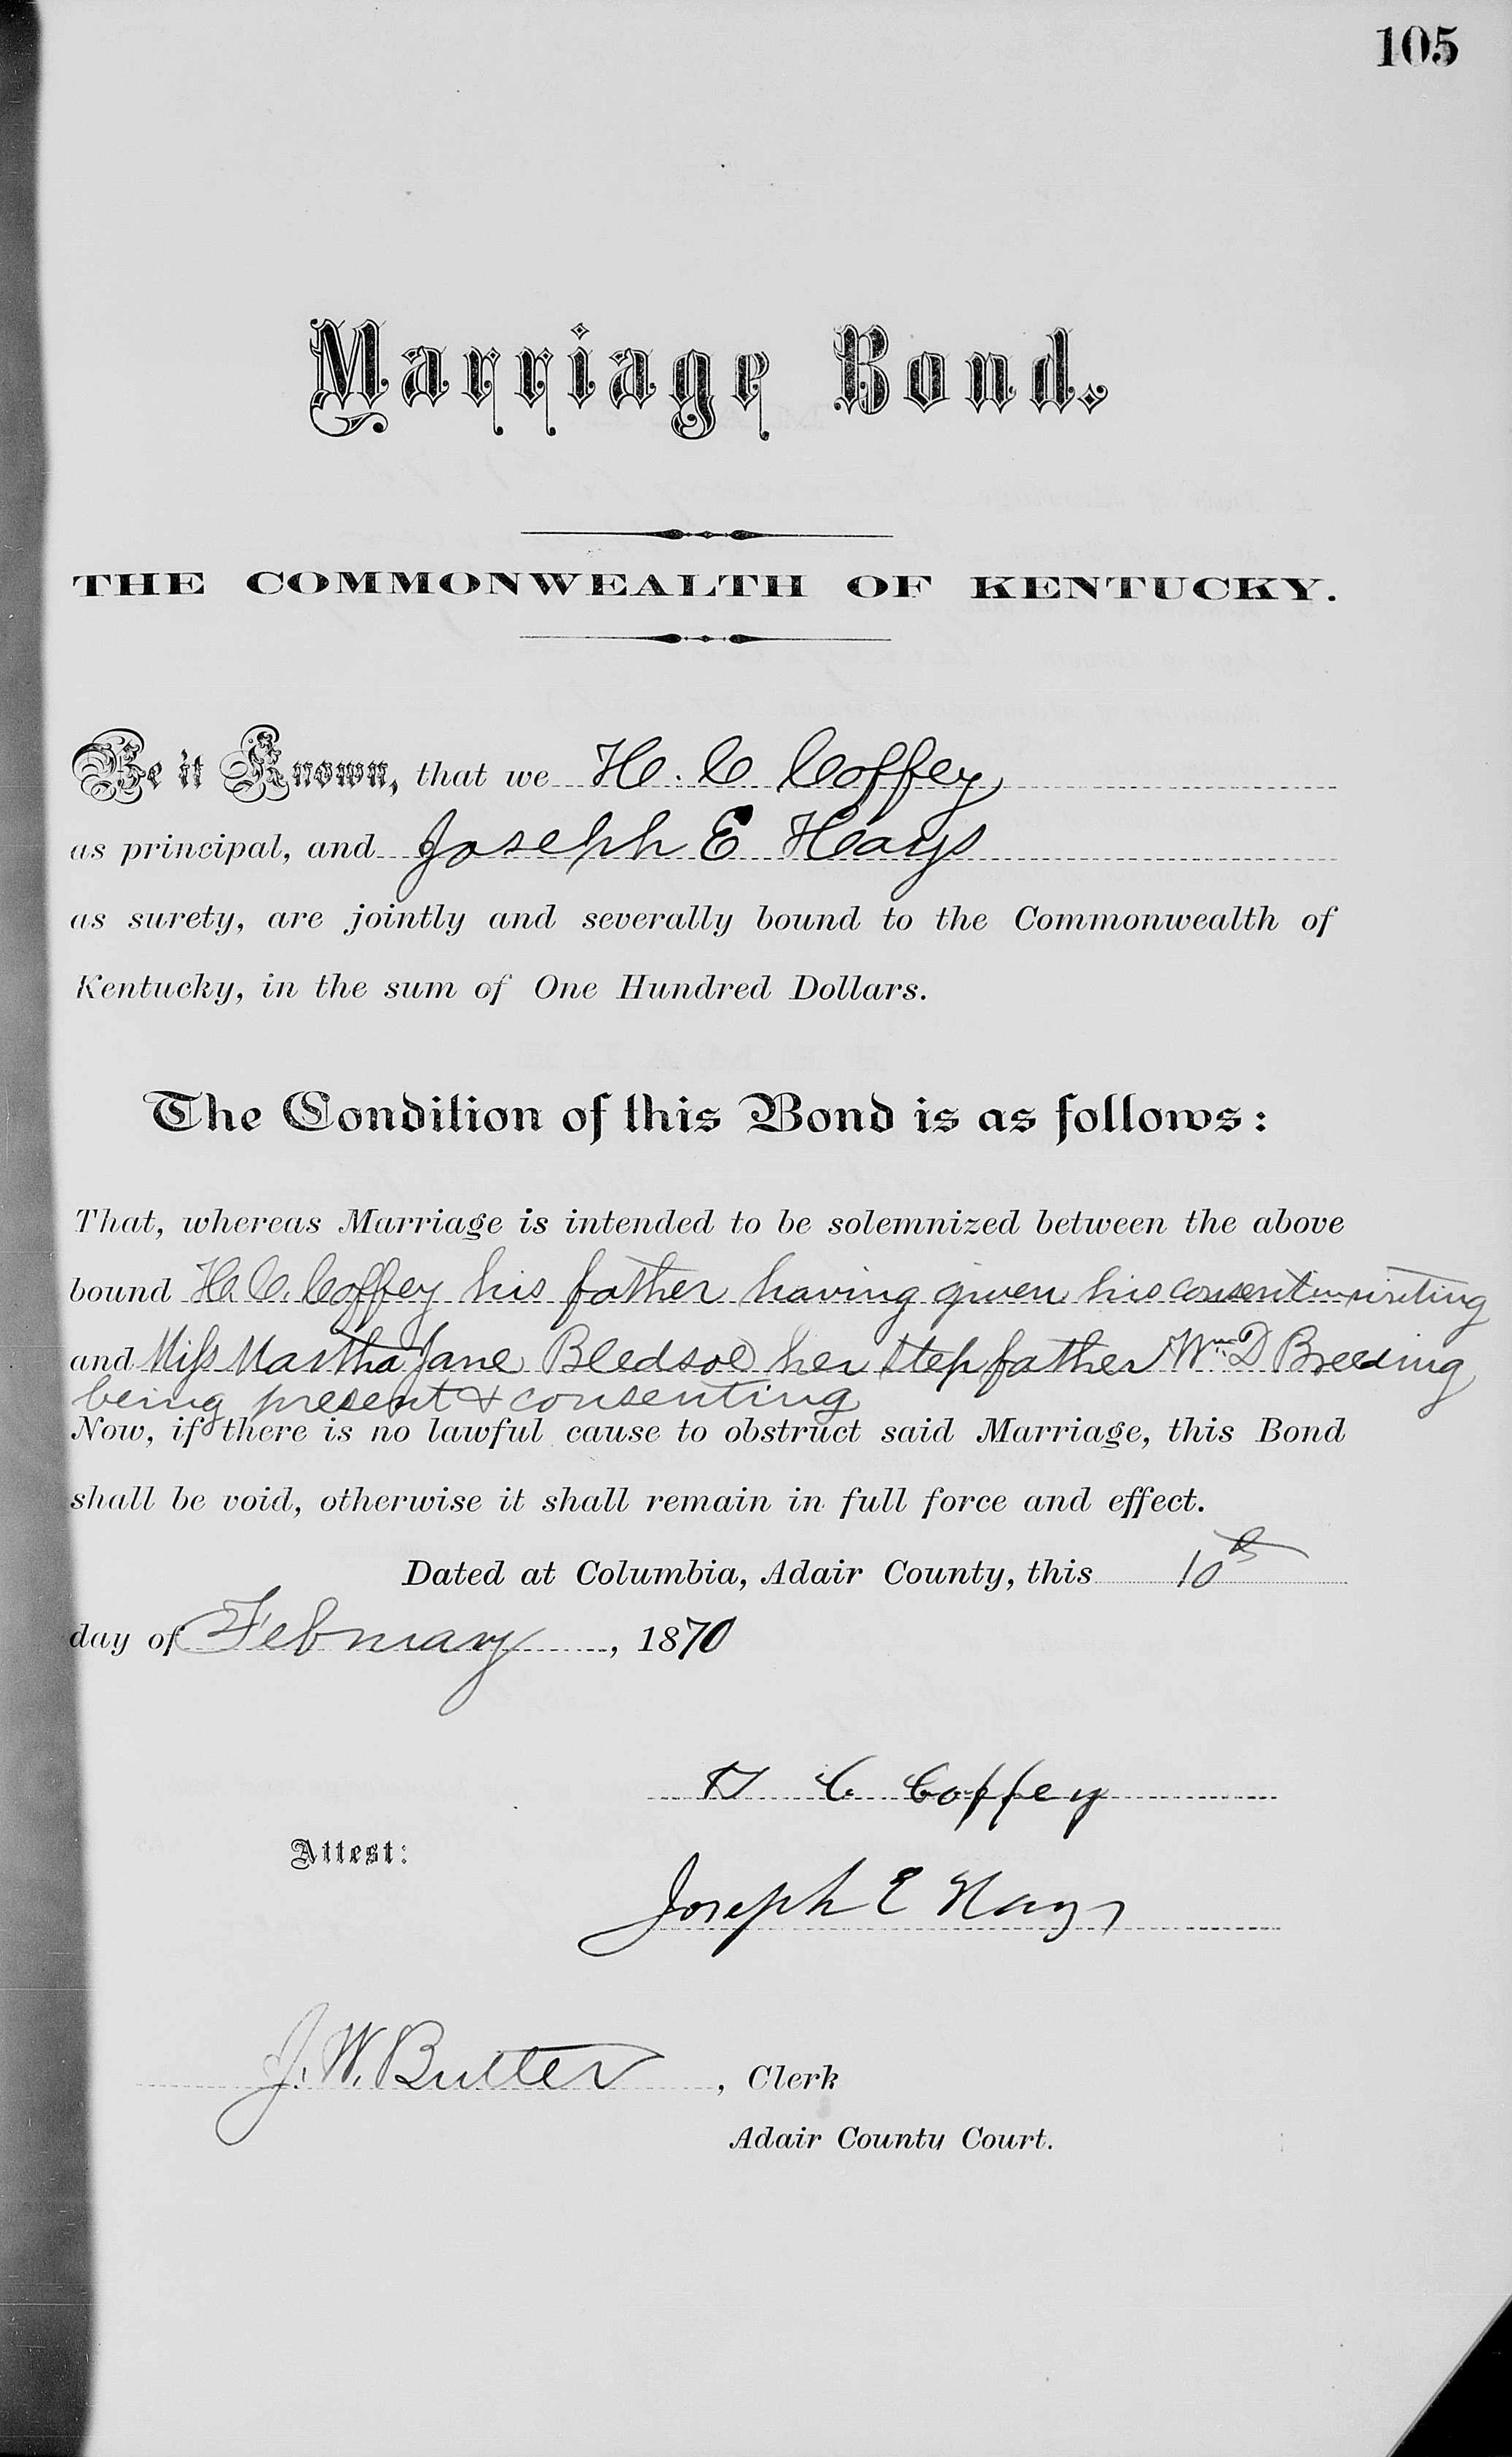 105
Marriage Bond.
THE COMMONWEALTH OF KENTUCKY.
Be it Known, that we H. C Coffey
as principal, and Joseph E Hays
as surety, are jointly and severally bound to the Commonwealth of
Kentucky, in the sum of One Hundred Dollars.
The Condition of this Bond is as follows:
That, whereas Marriage is intended to be solemnized between the above
bound H. C. Coffey his father having given his consent in writing
and Miss Martha Jane Bledsoe her step father Wm D Breeding
being present & consenting
Now, if there is no lawful cause to obstruct said Marriage, this Bond
shall be void, otherwise it shall remain in full force and effect.
Dated at Columbia, Adair County, this 10th
day of February, 1870
H C Coffey
Attest:
Joseph E Hays
J. W. Butler, Clerk
Adair County Court.